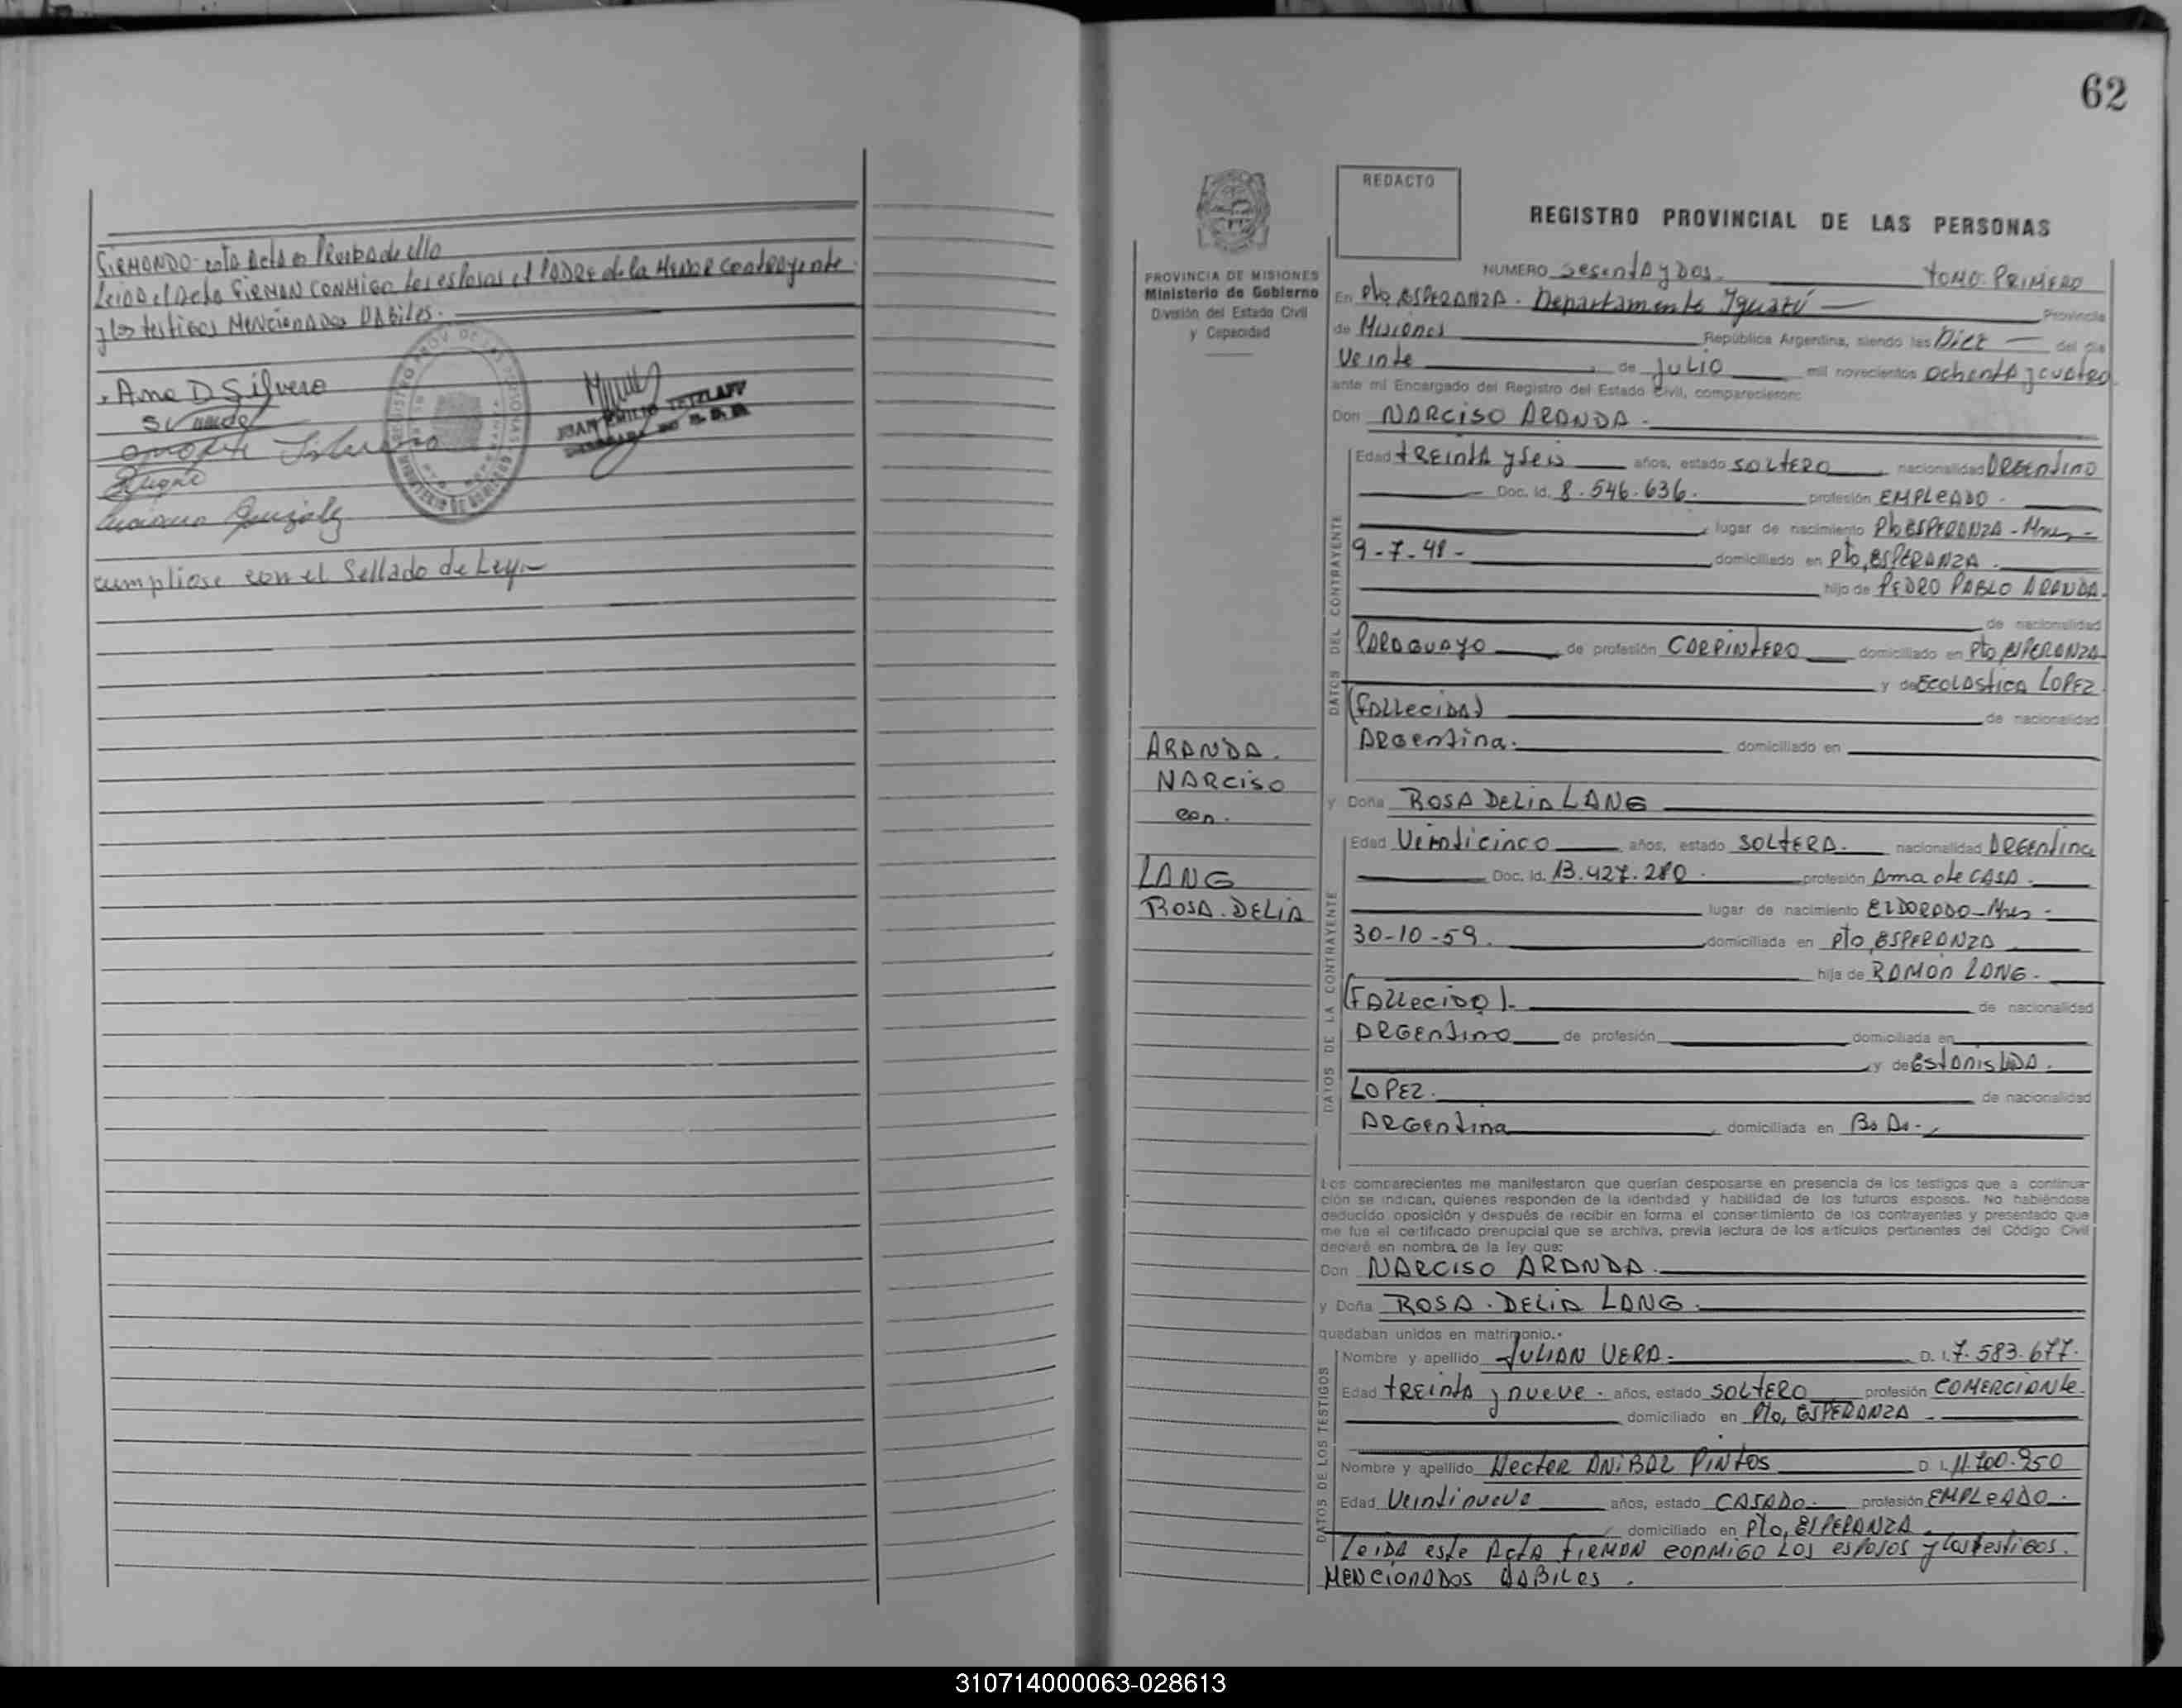 FIRMANDO esta Acta en Prueba de ello
Leida el Acta FIRMAN CONMIGO los esposos el PADRE de la MENOR contrayente
y los testigos MENCIONADOS HABILES.
Ana D Silvero
JUAN EMILIO TETZLAFF
cumpliose con el Sellado de Ley
62
REDACTO
REGISTRO PROVINCIAL DE LAS PERSONAS
PROVINCIA DE MISIONES
Ministerio de Gobierno
División del Estado Civil
y Capacidad
NUMERO sesenta y Dos TOMO. PRIMERO
En Pto ESPERANZA. Departamento Iguazú Provincia
de Misiones República Argentina, siendo las Diez del día
Veinte de JULIO mil novecientos ochenta y cuatro
ante mí Encargado del Registro del Estado Civil, comparecieron:
Don NARCISO ARANDA.
DATOS DEL CONTRAYENTE
Edad TREINTA y seis años, estado SOLTERO nacionalidad ARGENTINO
Doc. Id. 8.546.636. profesión EMPLEADO.
lugar de nacimiento Pto ESPERANZA - Mnes -
9-7-48- domiciliado en Pto, ESPERANZA.
hijo de PEDRO PABLO ARANDA.
de nacionalidad
PARAGUAYO de profesión CARPINTERO domiciliado en Pto ESPERANZA
y de ECOLASTICA LOPEZ.
(FALLECIDA) de nacionalidad
ARGENTINA. domiciliado en
ARANDA.
NARCISO
con.
LANG
ROSA. DELIA
y Doña ROSA DELIA LANG
DATOS DE LA CONTRAYENTE
Edad Veinticinco años, estado SOLTERA. nacionalidad ARGENTINA
Doc. Id. 13.427.280. profesión Ama de CASA.
lugar de nacimiento ELDORADO - Mnes -
30-10-59. domiciliada en Pto, ESPERANZA
hija de RAMON LANG.
(FALLECIDO). de nacionalidad
ARGENTINO de profesión domiciliada en
y de ESTANISLADA.
LOPEZ. de nacionalidad
ARGENTINA domiciliada en
Los comparecientes me manifestaron que querían desposarse en presencia de los testigos que a continua-
ción se indican, quienes responden de la identidad y habilidad de los futuros esposos. No habiéndose
deducido oposición y después de recibir en forma el consentimiento de los contrayentes y presentado que
me fue el certificado prenupcial que se archiva, previa lectura de los artículos pertinentes del Código Civil
declaré en nombre de la ley que:
Don NARCISO ARANDA.
y Doña ROSA. DELIA LANG.
quedaban unidos en matrimonio.-
DATOS DE LOS TESTIGOS
Nombre y apellido JULIAN VERA. D. I. 7.583.677.
Edad TREINTA y nueve. años, estado SOLTERO profesión COMERCIANTE.
domiciliado en Pto, ESPERANZA.
Nombre y apellido Hector ANIBAL PINTOS D. I. 11.700.950
Edad Veintinueve años, estado CASADO. profesión EMPLEADO.
domiciliado en Pto, ESPERANZA.
LEIDA este ACTA FIRMAN CONMIGO LOS ESPOSOS y los testigos.
MENCIONADOS HABILES.
310714000063-028613